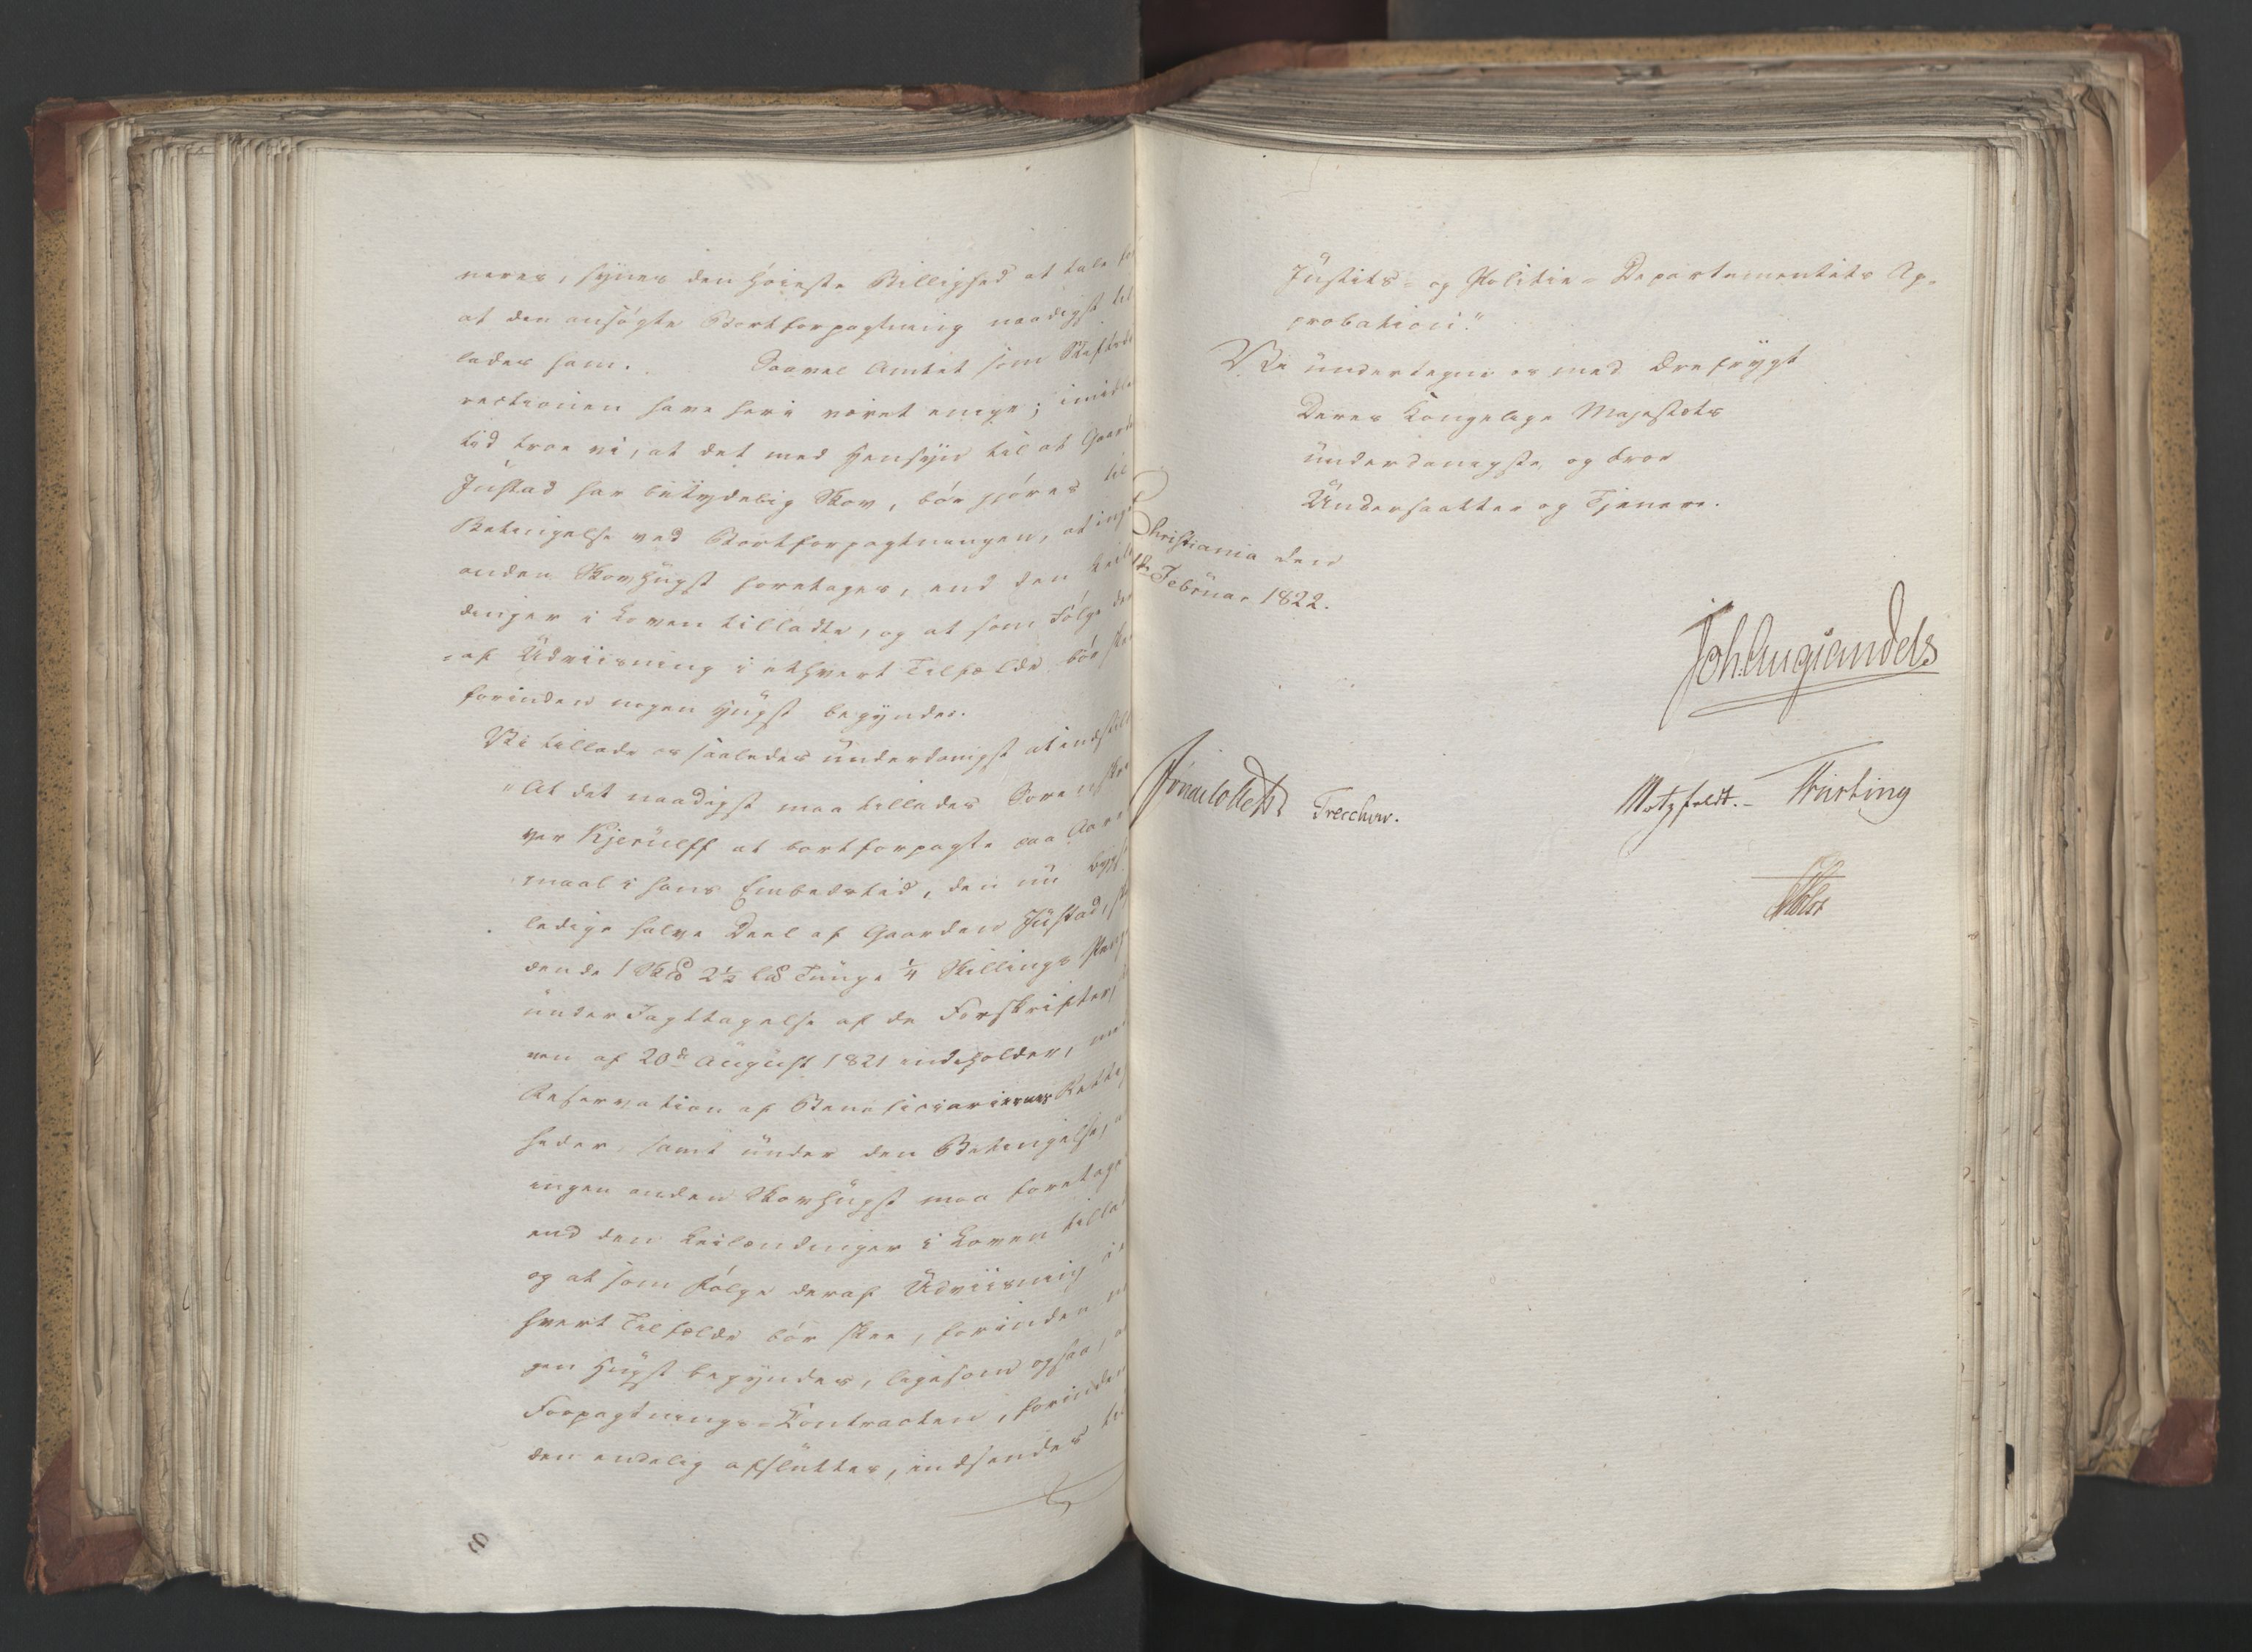 neres, synes den høieste Billighed at tale
at den ansøgte Bortforpagtning naadigst til
lades ham. Saavel Amtet som Stiftsdi
rectionen have heri været enige; imidler
tid troe vi, at det med Hensyn til at Gaarden
Justad har betydelig Skov, bør gjøres til
Betingelse ved Bortforpagtningen, at ingen
anden Skovhugst foretages, end den Leilæn
dinger i Loven tilladte, og at som Følge der
af Udviisning i ethvert Tilfælde bør skee
forinden nogen Hugst begyndes.
Vi tillade os saaledes underdanigst at indstille
"At det naadigst maa tillades Sorenskri
ver Kjerulff at bortforpagte paa Aare
maal i hans Embedstid, den nu bygsel
ledige halve Deel af Gaarden Justad,
dende 1 Sk℔ 2½ L℔ Tunge ¼ Skillings
under Iagttagelse af de Forskrifter,
ven af 20de August 1821 indeholder, med
Reservation af Beneficiariernes Rettig
heder, samt under den Betingelse, at
ingen anden Skovhugst maa foretages
end den Leilændinger i Loven tilladte
og at som Følge deraf Udviisning i et
hvert Tilfælde bør skee, forinden no
gen Hugst begyndes, ligesom ogsaa, at
Forpagtnings-Contracten, forinden
den endelig afsluttes, indsendes til
Justits- og Politie-Departementets Ap-
probation."
Vi undertegne os med Ærefrygt
Deres Kongelige Majestæts
underdanigste og troe
Undersaatter og Tjenere.
Christiania den
Februar 1822.
Joh. Aug. Sandels
Jonas Collett Treschow.
Motzfeldt. Krusting
Holst